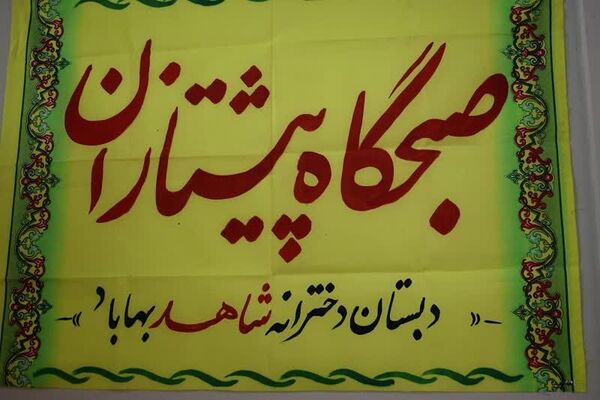 صبحگاه پیشتازان
« دبستان دخترانه شاهد بهاباد »